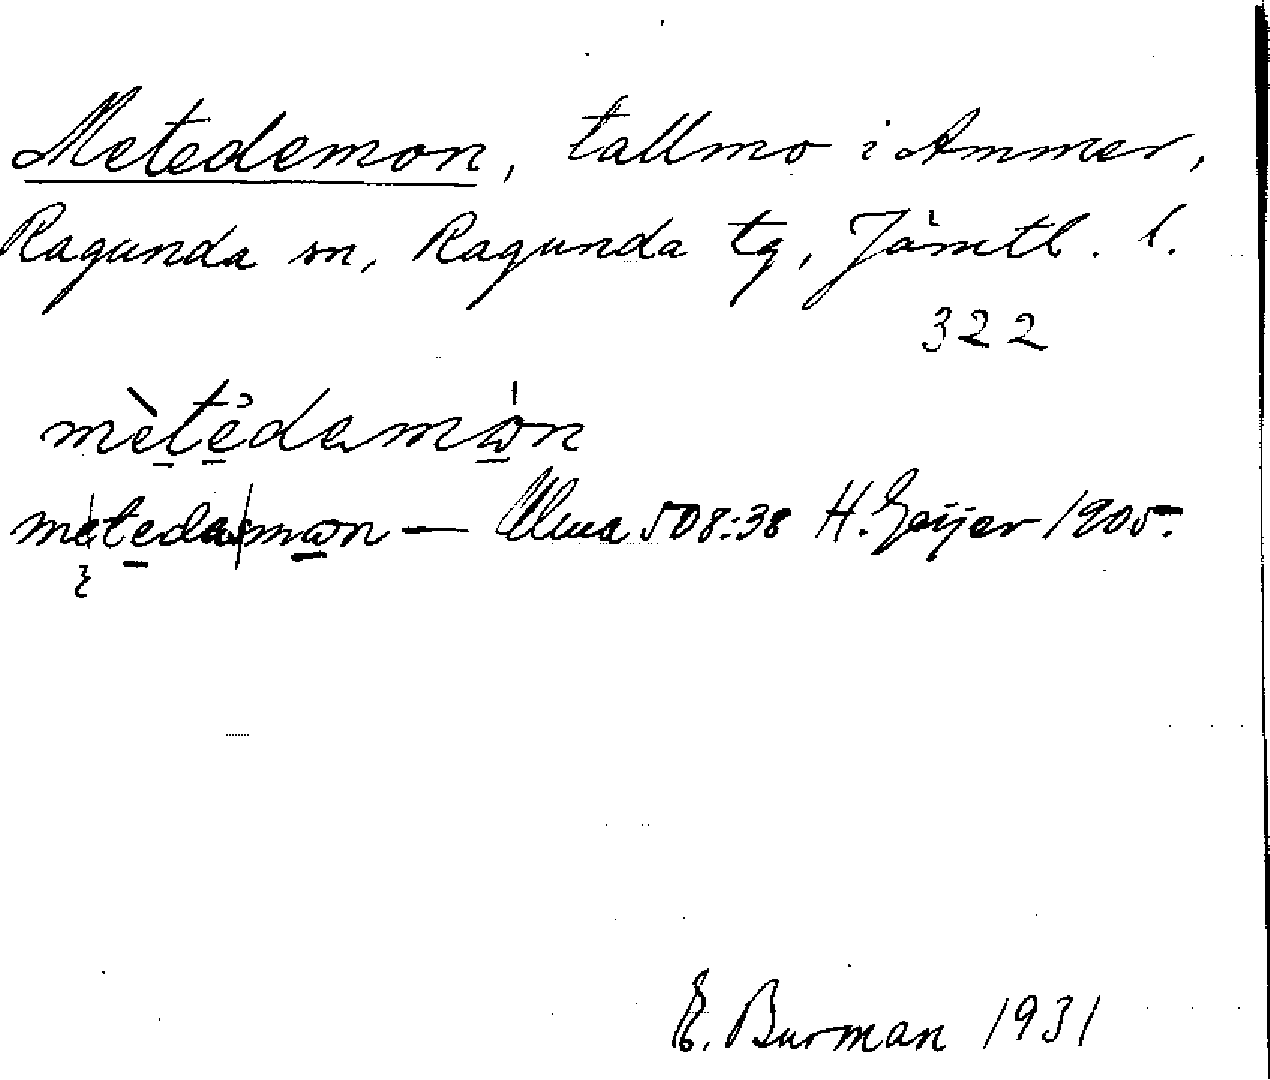 Metedemon, tallmo i Ammer,
Ragunda sn, Ragunda tg, Jämtl. l.
322
mètedamωn
metedamωn — Ulma 508:38 H. Geijer 1905.
E. Burman 1931